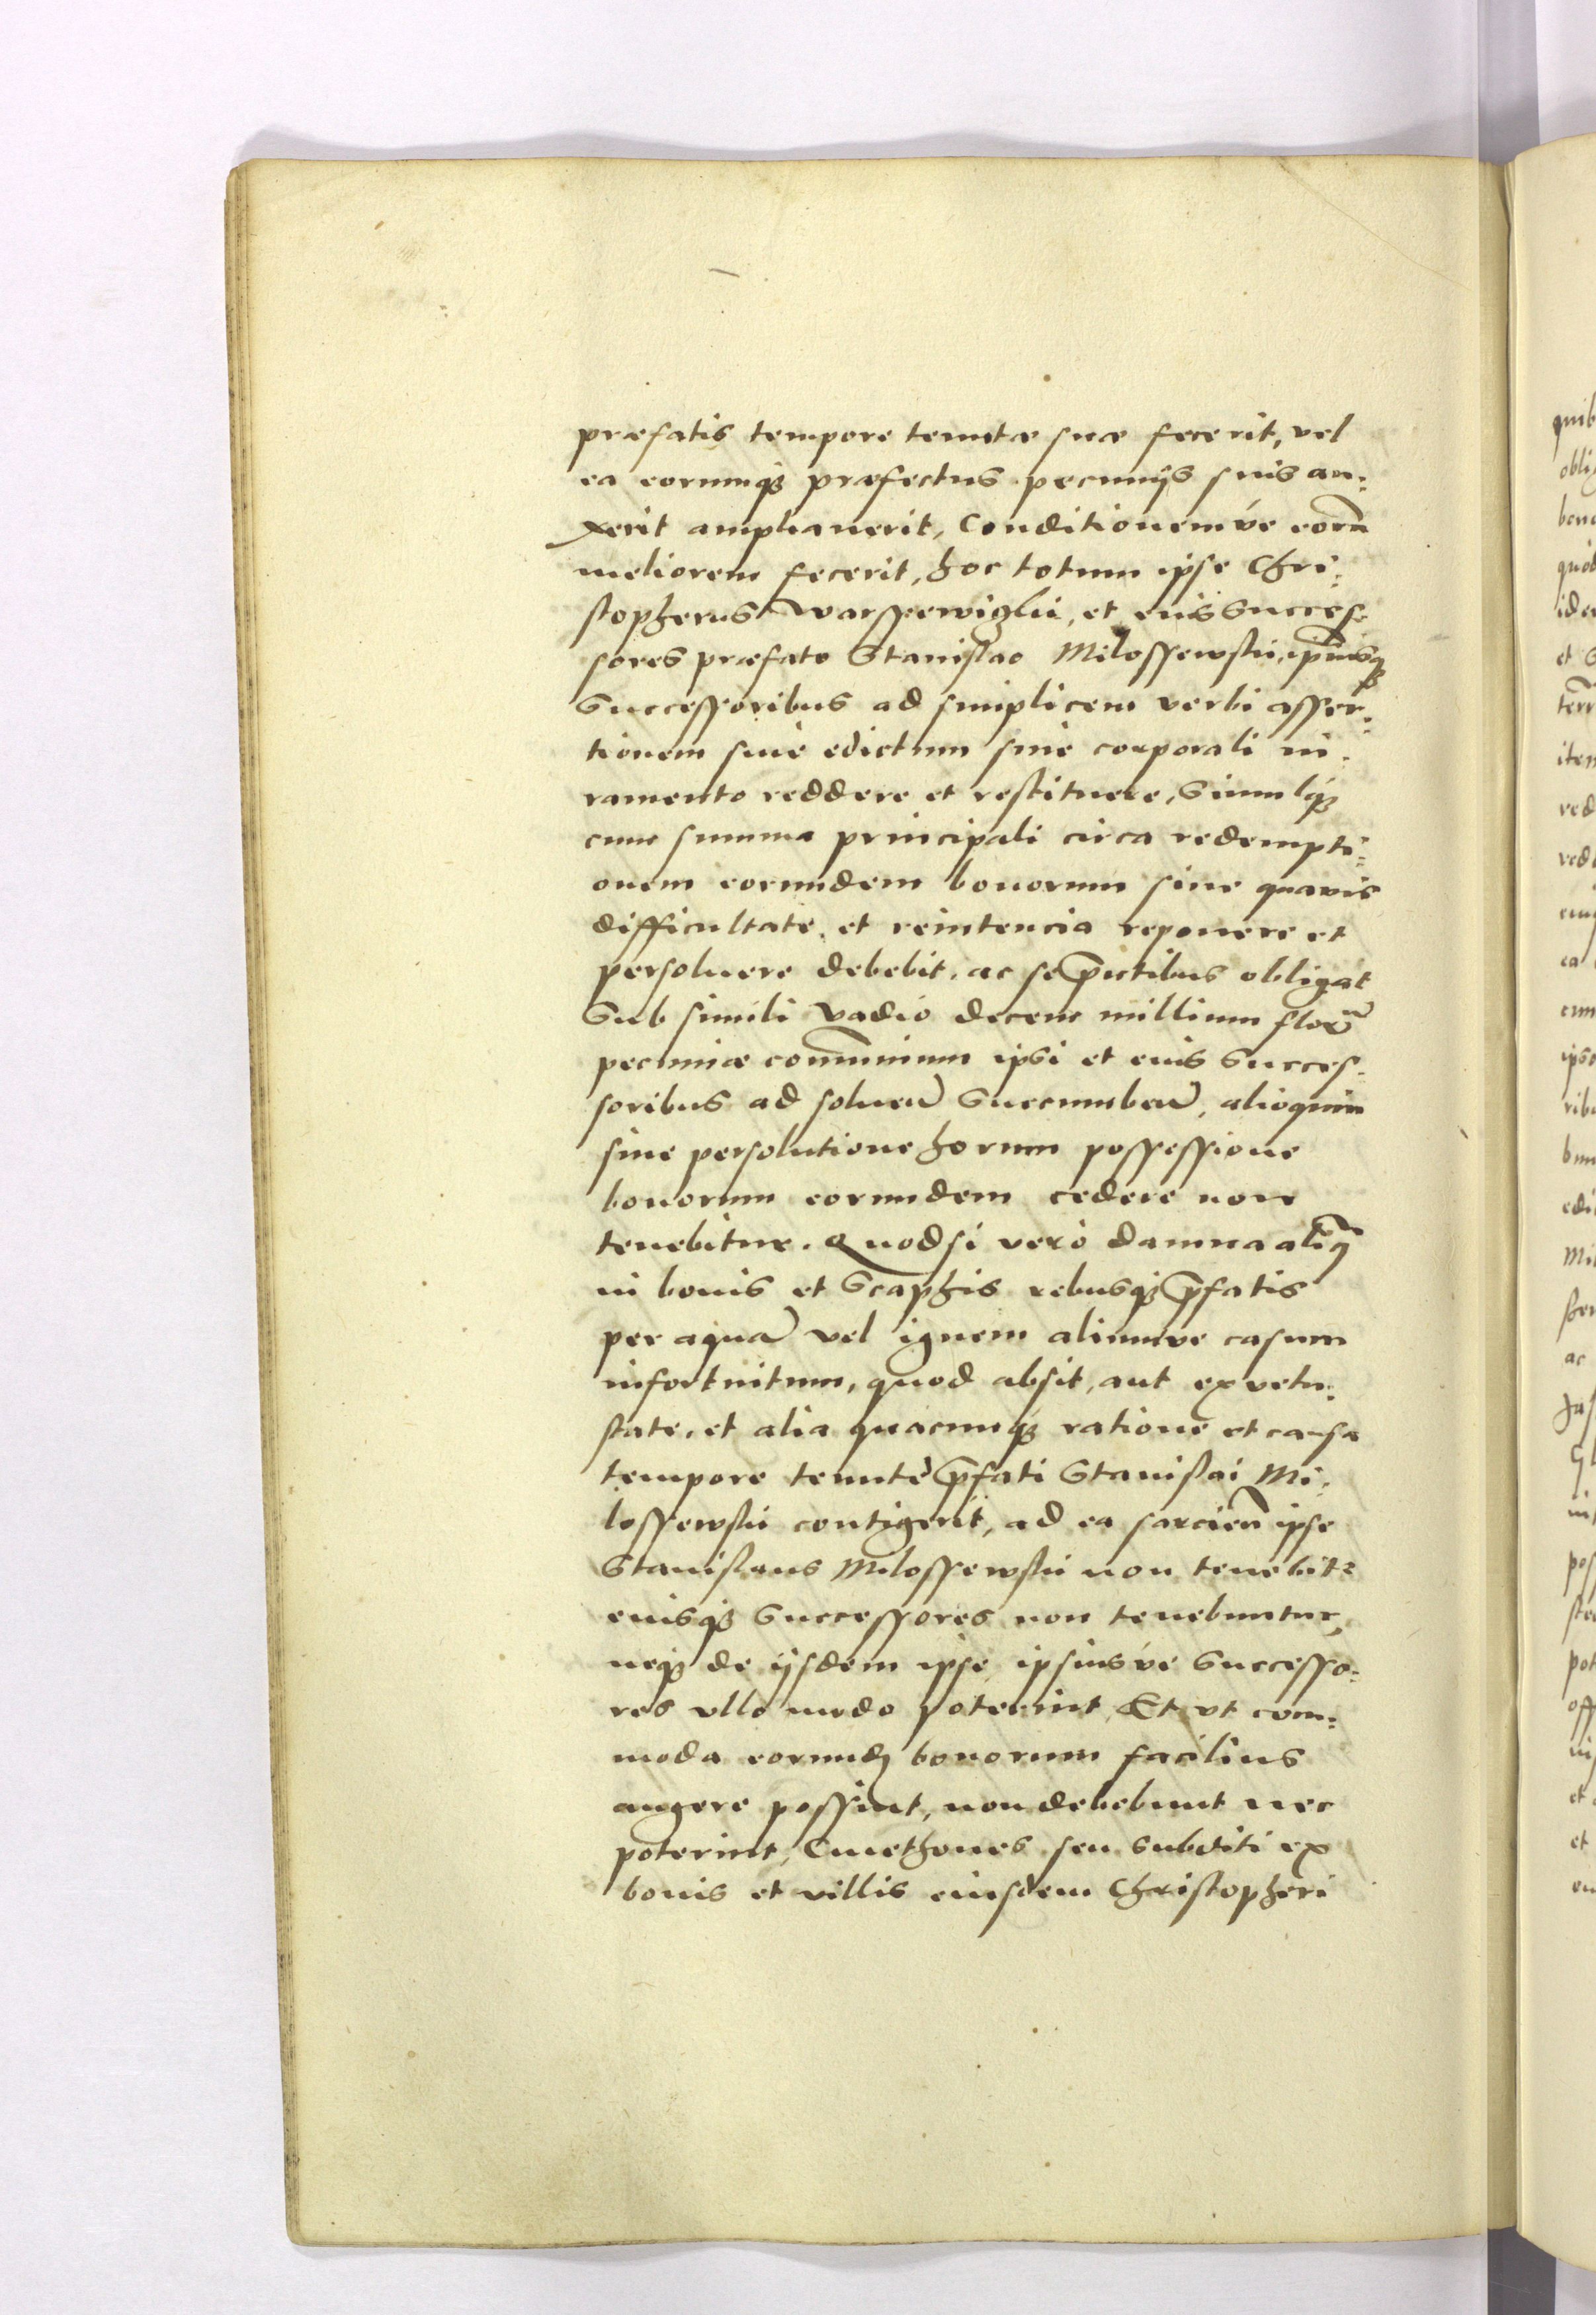 præfatis tempore tenutæ suæ fecerit, vel
ea eorumqꝫ præfectus pecunijs suis au⸗
xerit ampliauerit, Conditionemve eorū
meliorem fecerit, hoc totum ipse Chri⸗
stopherus Warssewiczkii, et eius Succes⸗
sores præfato Stanislao Milossewskii, ip̄iusqꝫ
Successoribus ad simplicem verbi asser⸗
tionem siue edictum sine corporali iu⸗
ramento reddere et restituere, Simulqꝫ
cum summa principali circa redempti⸗
onem eorundem bonorum sine quavis
difficultate, et renitencia reponere et
persoluere debebit, ac se p̄ntibus obligat
Sub simili vadio decem millium floꝝ
pecuniæ com̄unium ipsi et eius Succes⸗
soribus ad soluen̄ Succumben̄, alioquin
sine persolutione horum possessione
bonorum eorundem cedere non
tenebitur. Quodsi verò damna aliq̄
in bonis et Scaphis rebusqꝫ p̄fatis
per aquā vel ignem aliumve casum
infortuitum, quod absit, aut ex vetu⸗
state, et alia quacunqꝫ ratione et causa
tempore tenute p̄fati Stanislai Mi⸗
lossewskii contigerit, ad ea sarcien̄ ipse
Stanislaus Milossewskii non tenebit᷑
eiusqꝫ Successores non tenebuntur,
neqꝫ de ijsdem ipse ipsiusve Successo⸗
res vllo modo poterint, Et vt com⸗
moda eorundꝫ bonorum facilius
augere possint, non debebunt nec
poterint, Cmethones seu subditi ex
bonis et villis eiusdem Christopheri